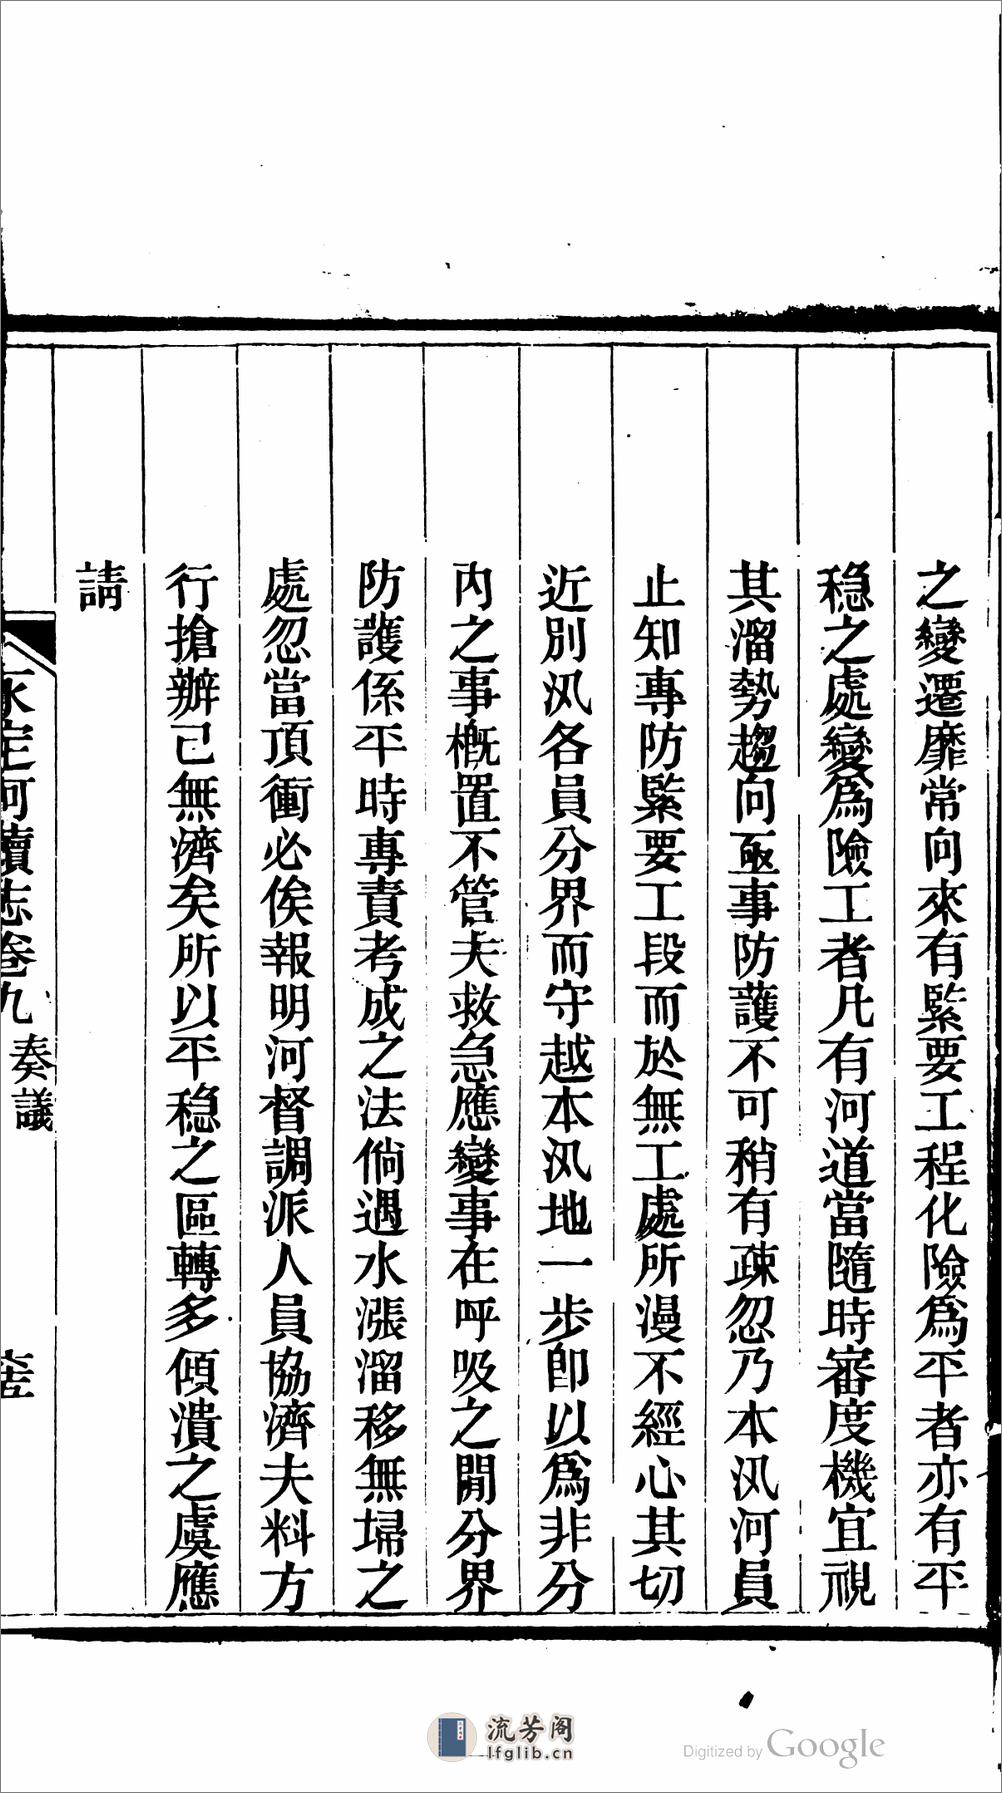 之變遷靡常向來有緊要工程化險爲平者亦有平
穩之處變爲險工者凡有河道當隨時審度機宜視
其溜勢趨向亟事防護不可稍有疎忽乃本汛河員
止知專防緊要工段而於無工處所漫不經心其切
近別汛各員分界而守越本汛地一步卽以爲非分
內之事槪置不管夫救急應變事在呼吸之閒分界
防護係平時專責考成之法倘遇水漲溜移無埽之
處忽當頂衝必俟報明河督調派人員協濟夫料方
行搶辦已無濟矣所以平穩之區轉多傾潰之虞應
請
永定河續志卷九 奏議
流芳阁
lfglib.cn
Digitized by Google